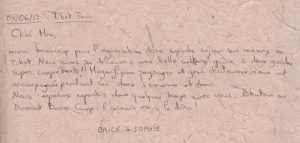 04/06/13 Tibet Tour
Cher Min,
merci beaucoup pour l'organisation de ce superbe séjour sur mesure au
Tibet. Nous avons pu découvrir une belle culture grâce à deux guides
super compétents!! Magnifiques paysages et gens chaleureux nous ont
accompagnés pendant ces deux semaines et demi.
Nous espérons repartir dans quelques temps avec vous: Bhutan ou
Everest Base Camp l'avenir nous le dira!
BRICE & SOPHIE